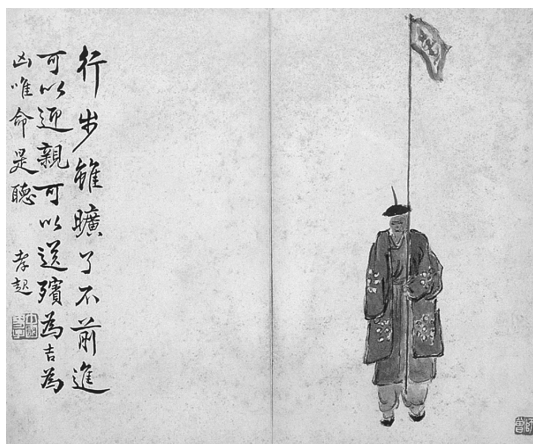 行步雖曠了不前進
可以迎親可以送殯為吉為
凶唯命是聽 孝起